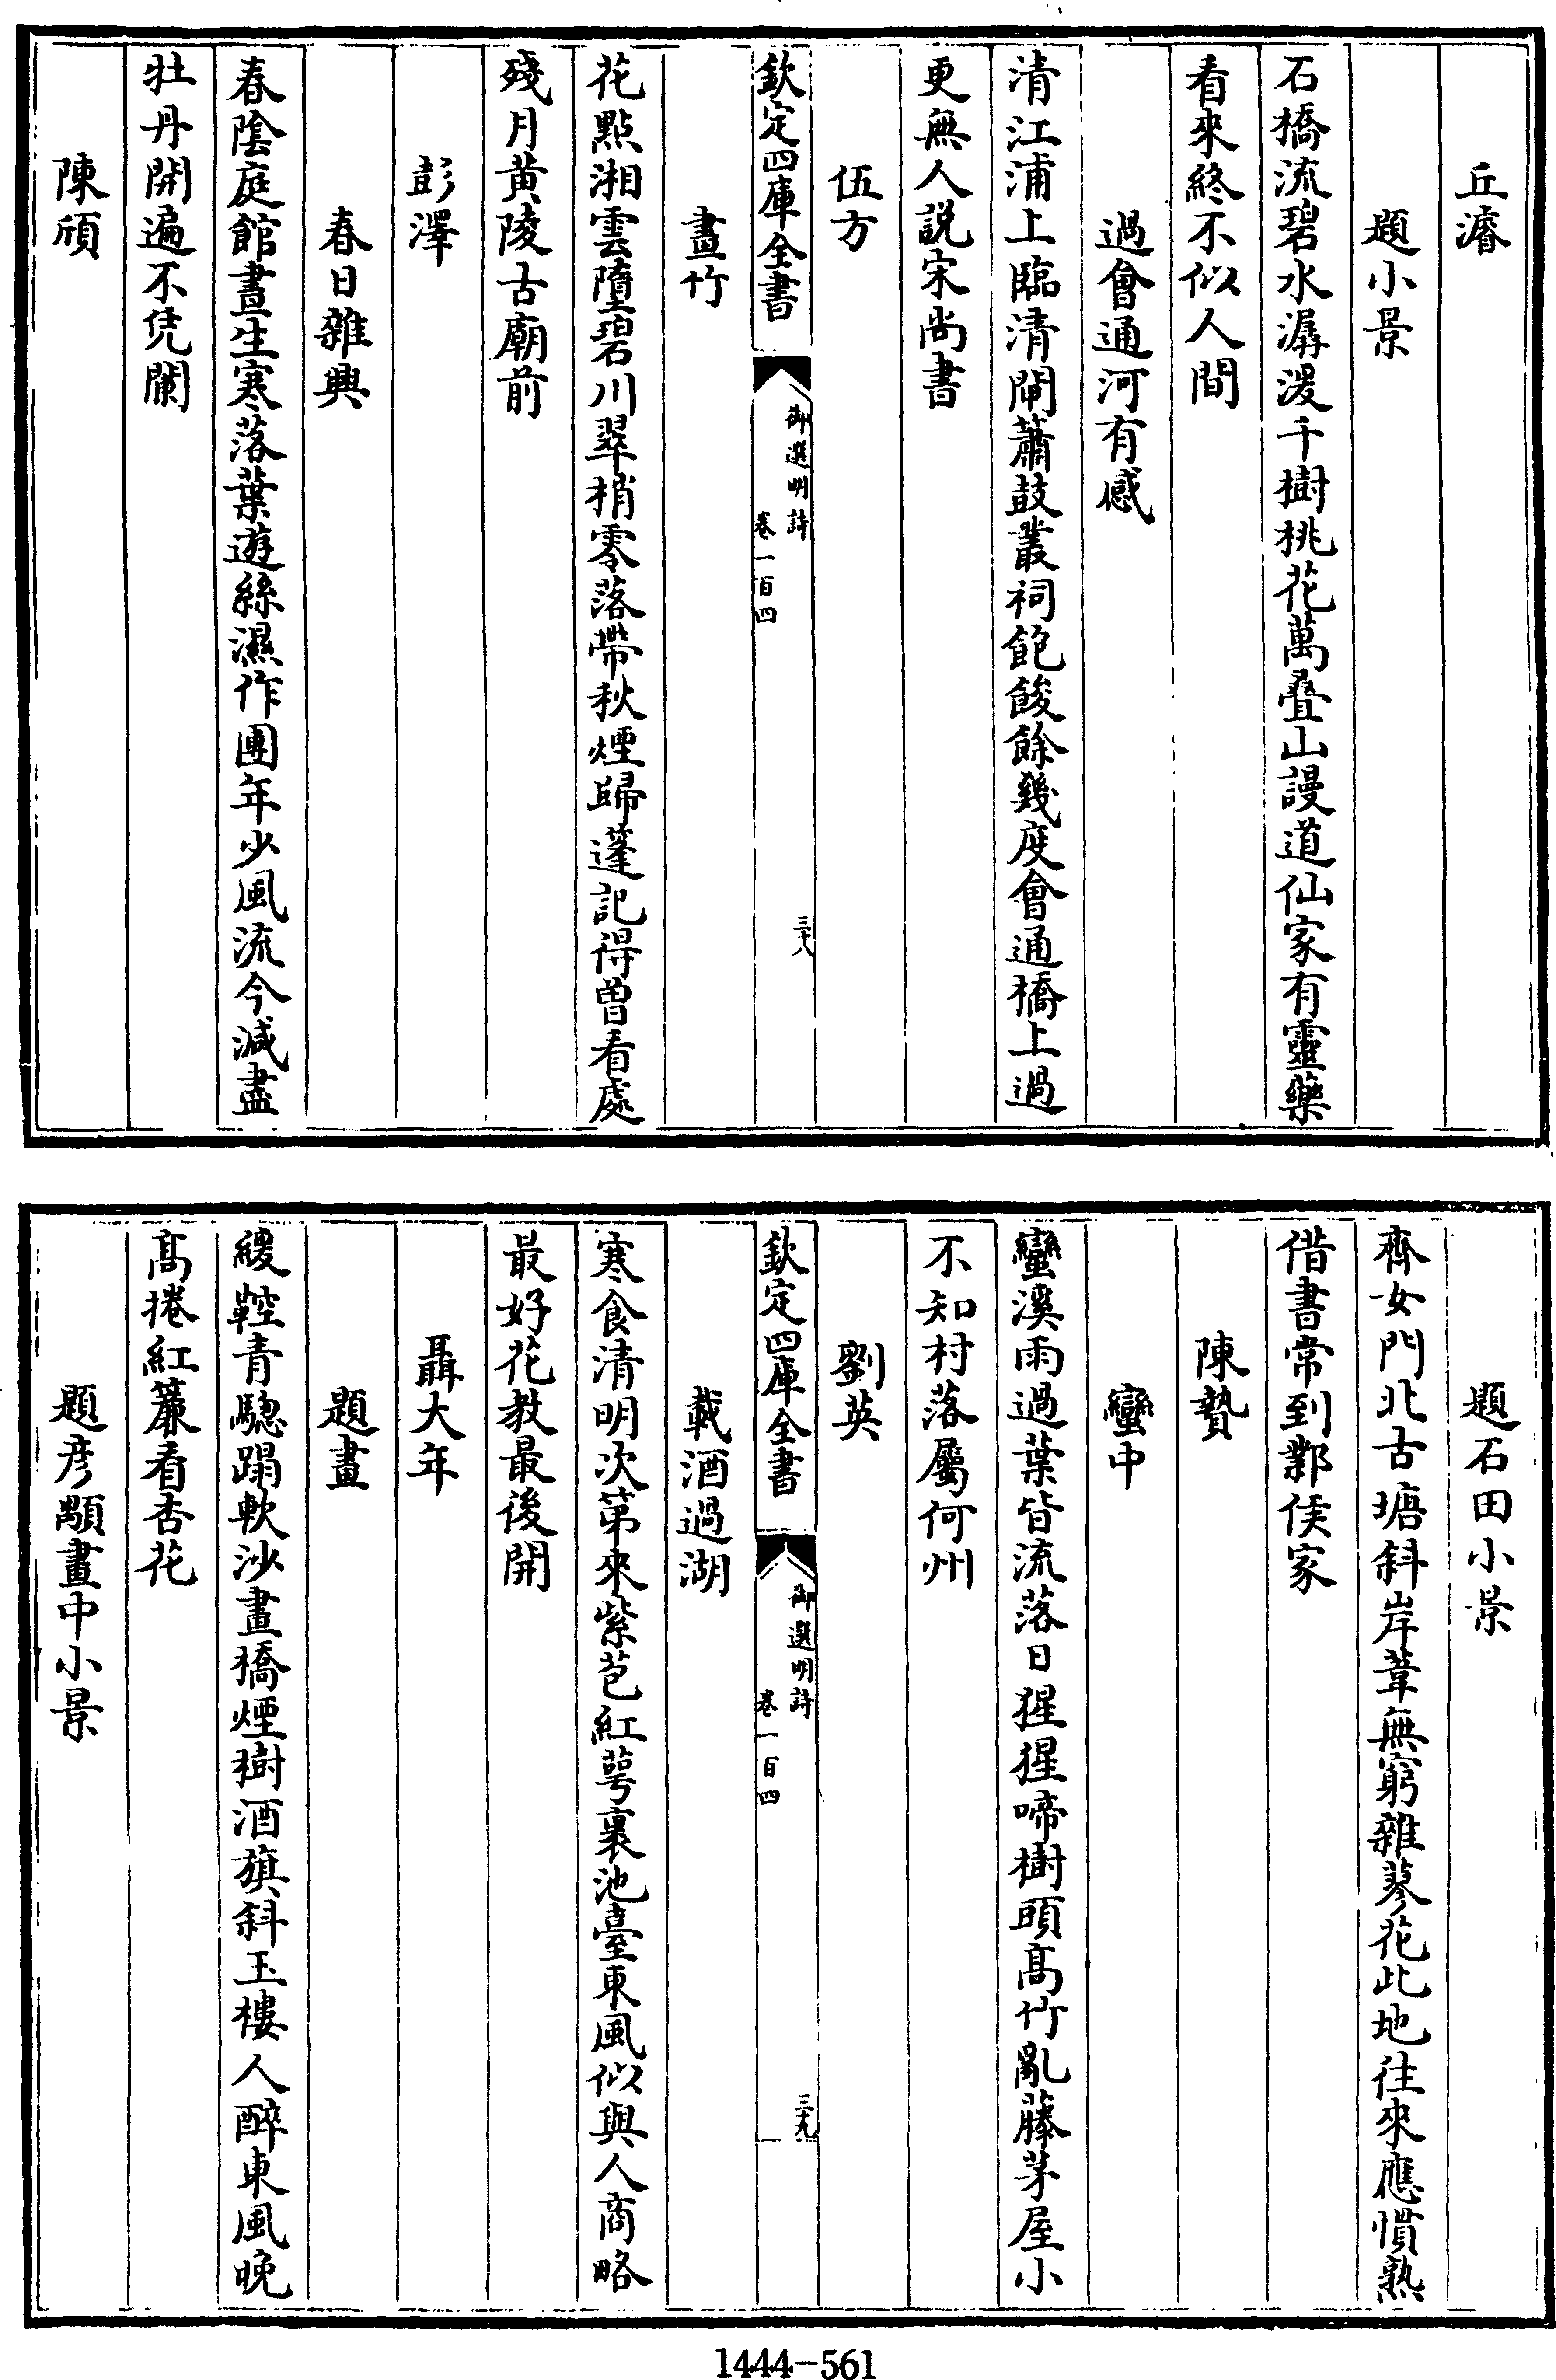 丘濬
題小景
石橋流碧水潺湲千樹桃花萬疊山謾道仙家有靈藥
看來終不似人間
過會通河有感
清江浦上臨清閘蕭鼓叢祠飽餕餘幾度會通橋上過
更無人説宋尚書
伍方
欽定四庫全書
御選明詩
卷一百四
三十八
畫竹
花點湘雲墮碧川翠梢零落帶秋煙歸蓬記得曽看處
殘月黄陵古廟前
彭澤
春日雜興
春陰庭館晝生寒落葉遊絲濕作團年少風流今減盡
牡丹開遍不凭闌
陳頎
題石田小景
齊女門北古塘斜岸葦無窮雜蓼花此地往來應慣熟
借書常到鄴侯家
陳贄
蠻中
蠻溪雨過葉皆流落日猩猩啼樹頭髙竹亂藤茅屋小
不知村落屬何州
劉英
欽定四庫全書
御選明詩
卷一百四
三十九
載酒過湖
寒食清明次第來紫苞紅萼裹池臺東風似與人商略
最好花教最後開
聶大年
題畫
緩鞚青驄蹋軟沙畫橋煙樹酒旗斜玉樓人醉東風晚
髙捲紅簾看杏花
題彦顒畫中小景
1444-561